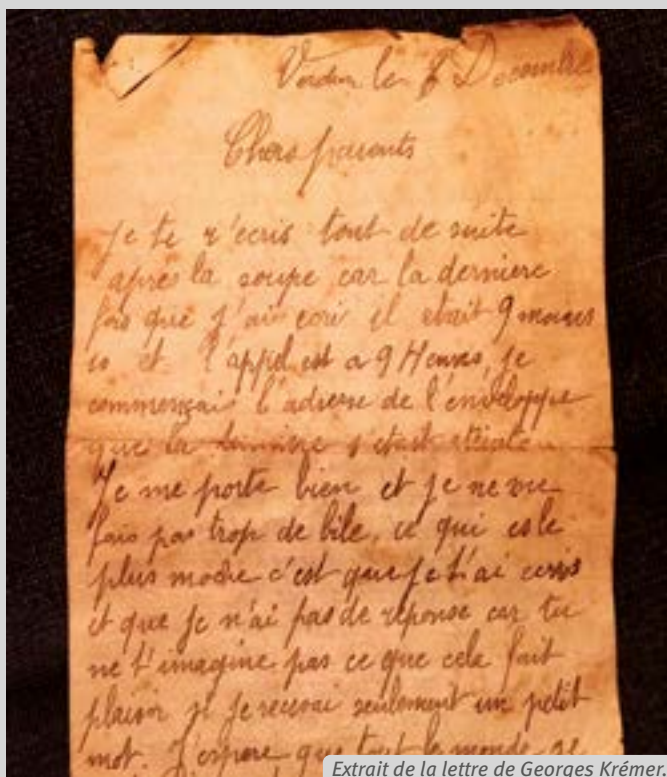 Verdun le 8 Decembre
Chers parents
Je te r'ecris tout de suite
après la soupe car la derniere
fois que j'ai ecri il etait 9 moins
10 et l'appel est a 9 Heures, je
commençais l'adresse de l'enveloppe
que la lumière s'etait
Je me porte bien et je ne me
fais pas trop de bile, ce qui est le
plus moche c'est que je t'ai ecris
et que je n'ai pas de réponse car tu
ne t'imagine pas ce que cela fait
plaisir si je recevai seulement un petit
mot. J'espere que tout le monde se
Extrait de la lettre de Georges Krémer.